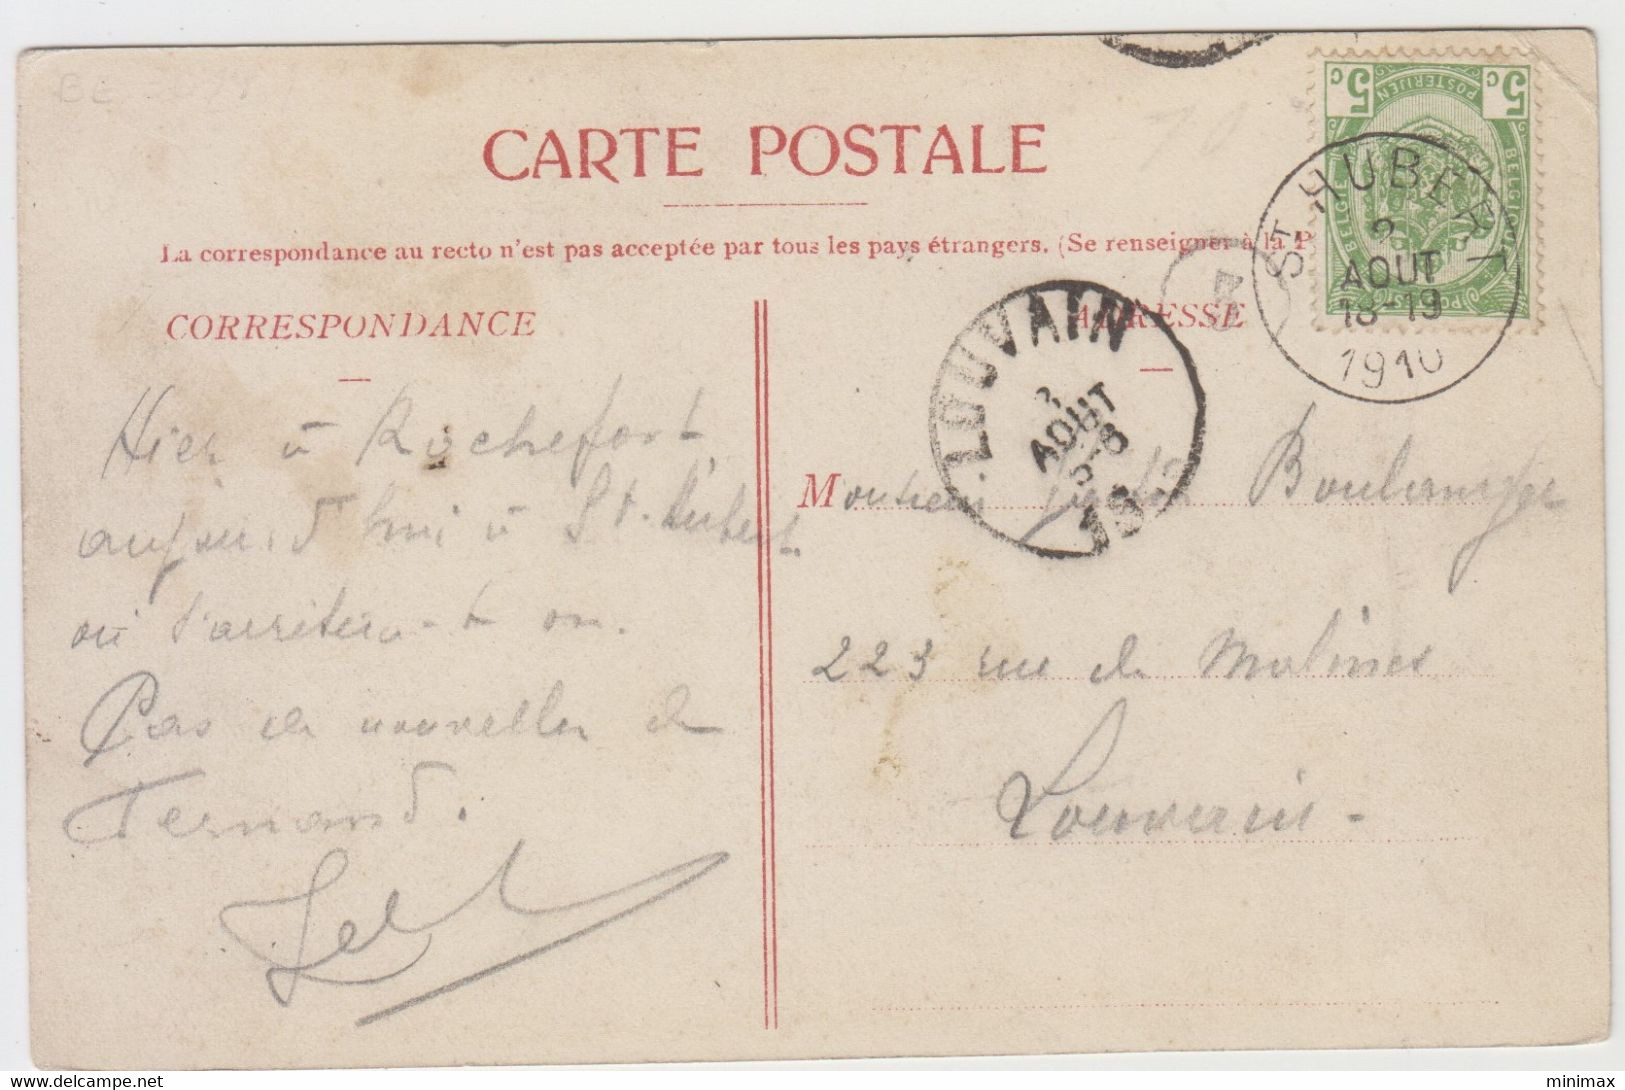 CARTE POSTALE
La correspondance au recto n'est pas acceptée par tous les pays étrangers. (Se renseigner à la P
CORRESPONDANCE
ADRESSE
5c POSTERIJEN 5c
BELGIE BELGIQUE
POSTES
ST HUBERT
2
AOUT
18-19
1910
LOUVAIN
AOUT
Hier à Rochefort
aujourd'hui à St. Hubert.
où s'arrêtera-t-on.
Pas de nouvelles de
Fernand.
Monsieur Boulanger
223 rue de Malines
Louvain.
minimax